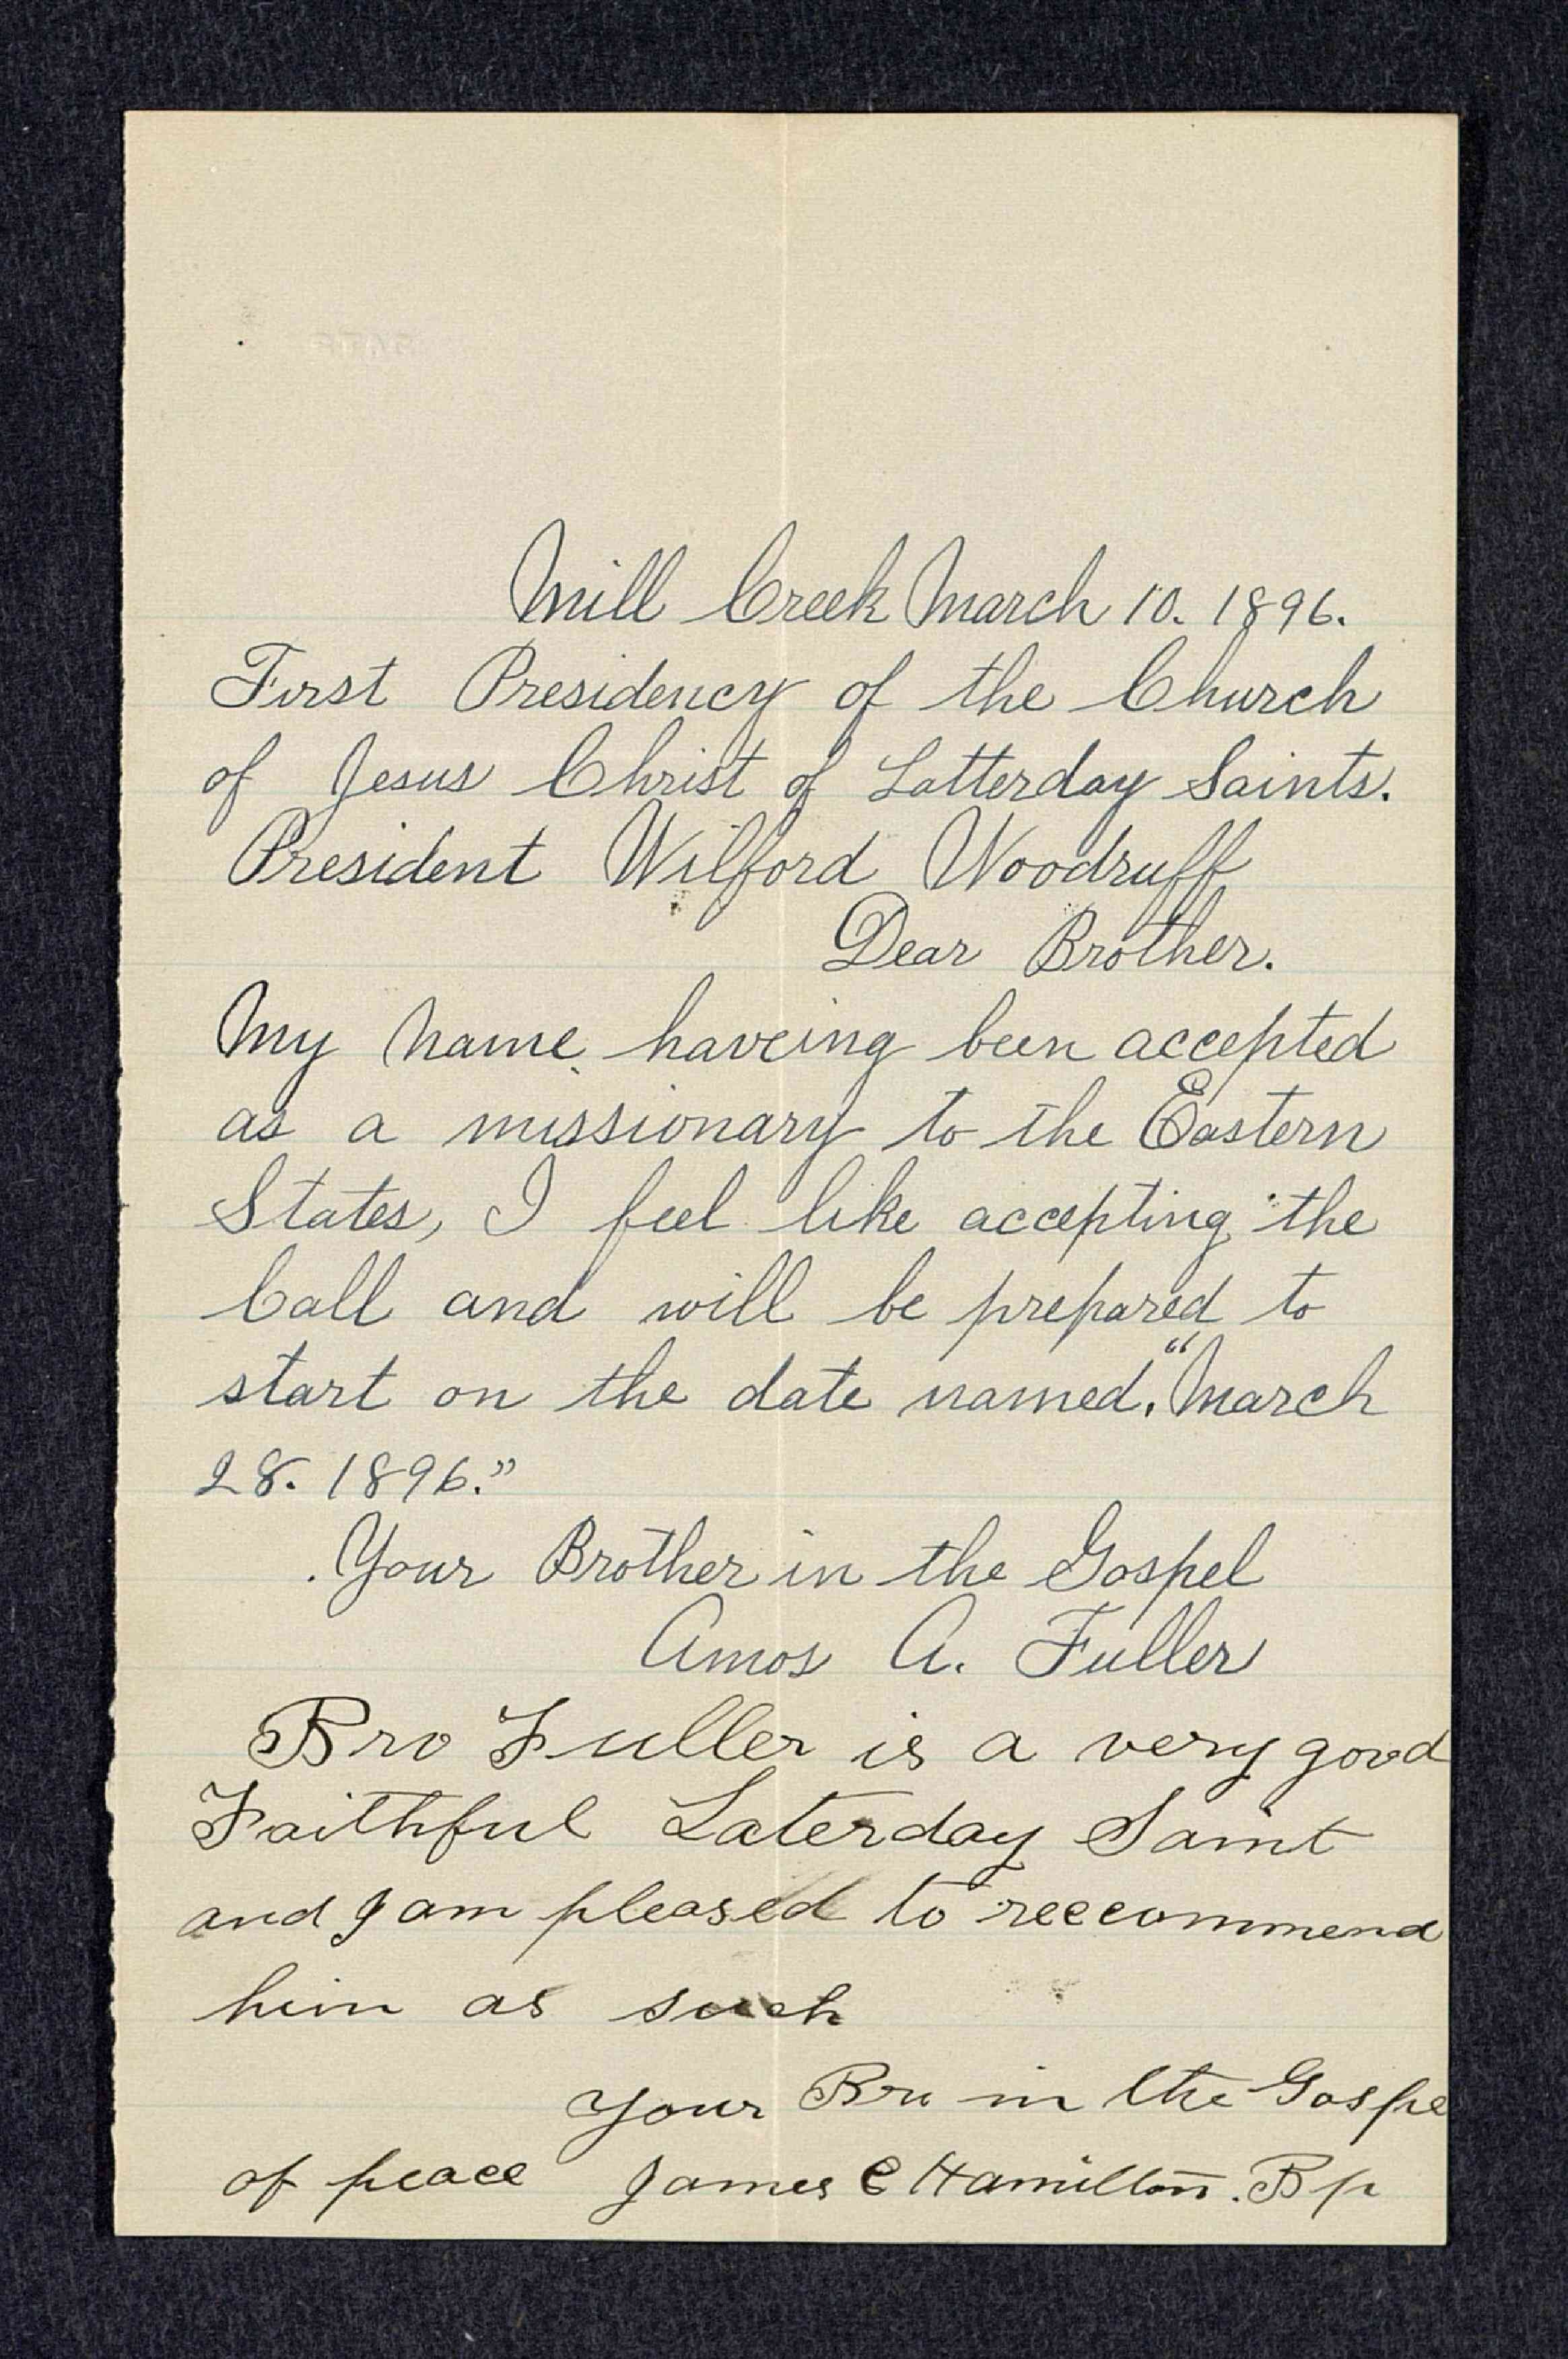 Mill Creek March 10. 1896.
First Presidency of the Church
of Jesus Christ of Latterday Saints.
President Wilford Woodruff
Dear Brother.
My Name haveing been accepted
as a missionary to the Eastern
States, I feel like accepting the
Call and will be prepared to
start on the date named. "March
28. 1896."
Your Brother in the Gospel
Amos A. Fuller
Bro Fuller is a very good
Faithful Laterday Saint
and I am pleased to reccommend
him as such
Your Bro in the Gospe
of peace James C Hamilton. Bp